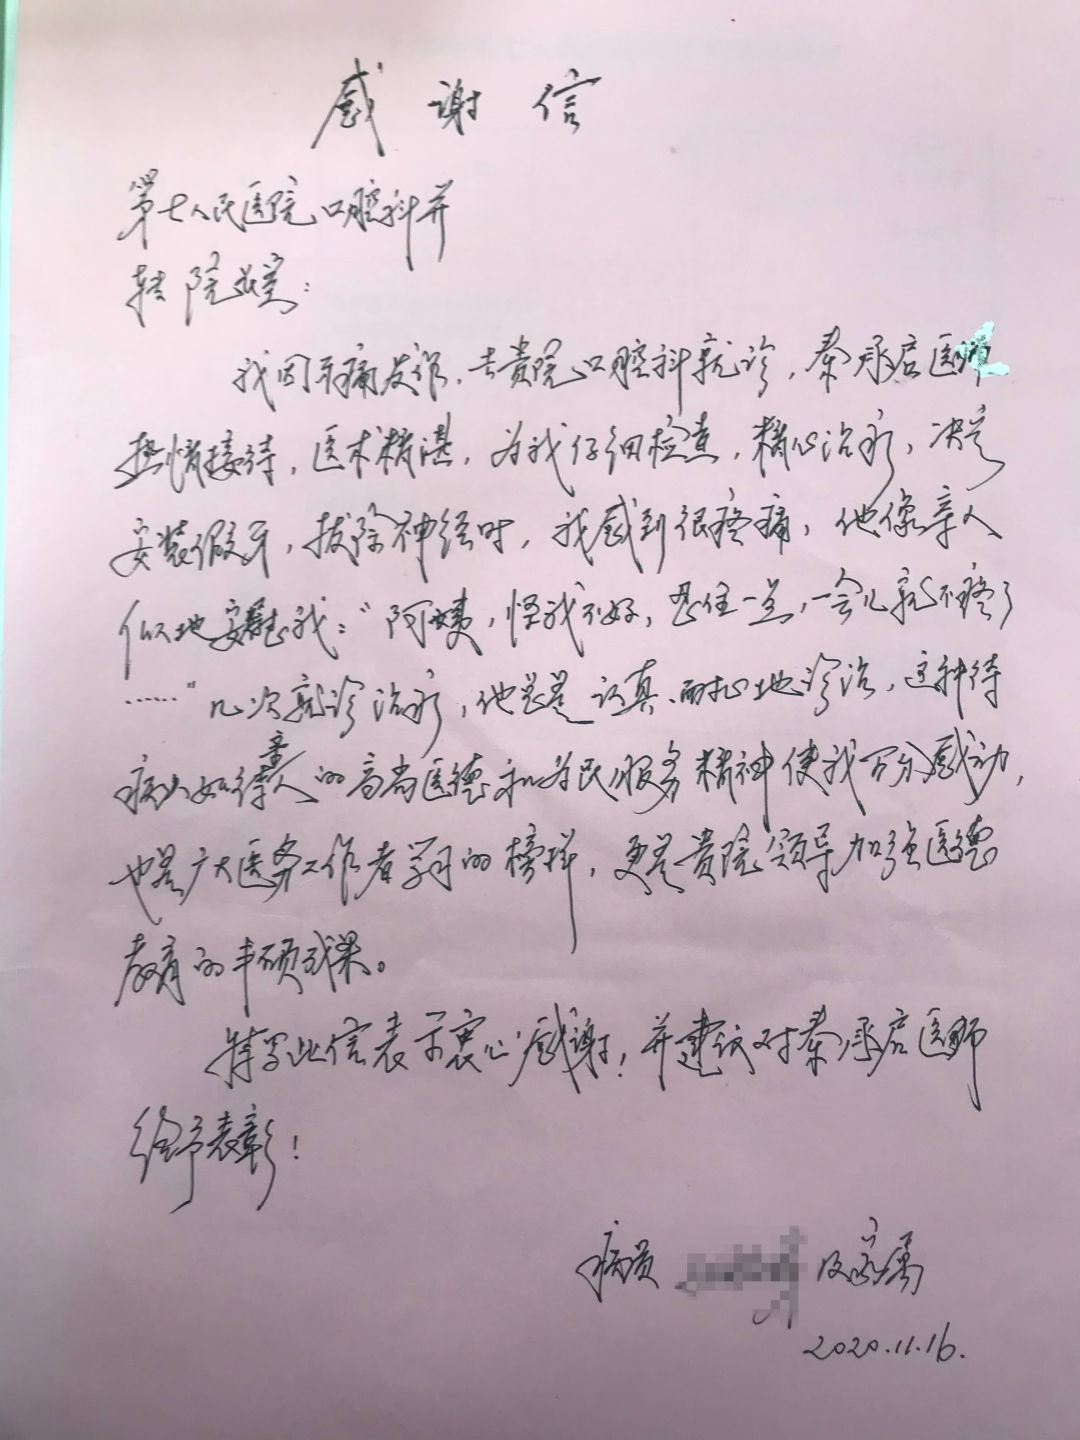 感谢信
第七人民医院口腔科并
转院党委:
我因牙痛发作,去贵院口腔科就诊,秦承启医师
热情接待,医术精湛,为我仔细检查,精心治疗,决定
安装假牙,拔除神经时,我感到很疼痛,他像亲人
似地安慰我:“阿姨,怪我不好,忍住一点,一会儿就不疼了
……”几次就诊治疗,他总是认真、耐心地诊治,这种待
病人如待亲人的高尚医德和为民服务精神使我万分感动,
也是广大医务工作者学习的榜样,更是贵院领导加强医德
教育的丰硕成果。
特写此信表示衷心感谢!并建议对秦承启医师
给予表彰!
病员 及家属
2020.11.16.